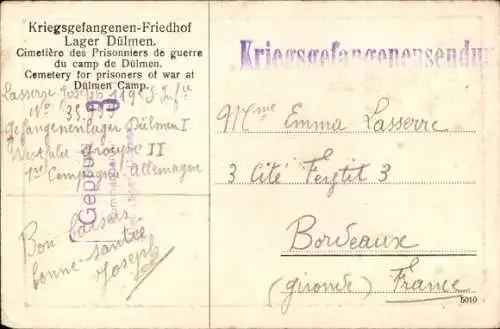 Kriegsgefangenen-Friedhof
Lager Dülmen.
Cimetière des Prisonniers de guerre
du camp de Dülmen.
Cemetery for prisoners of war at
Dülmen Camp.
Lasserre Joseph 119e
No
Gefangenenlager Dülmen I
Westfalie Groupe II
1re Compagnie Allemagne
Bon baisers
bonne santée
Joseph
Geprüft
Kriegsgefangenensendu
Mme Emma Lasserre
3 Cité 3
Bordeaux
(gironde) France
5010